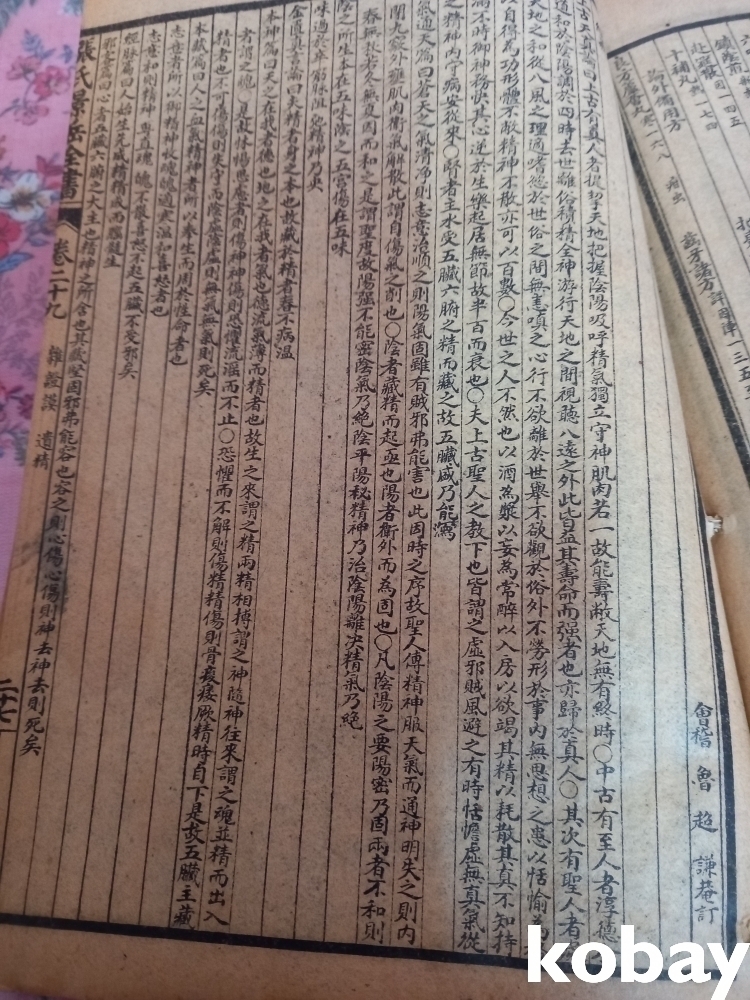 會稽 魯超 謙菴訂
上古天真論曰上古有真人者提挈天地把握陰陽吸呼精氣獨立守神肌肉若一故能壽敝天地無有終時○中古有至人者淳德
道和於陰陽調於四時去世離俗積精全神游行天地之間視聽八遠之外此皆益其壽命而强者也亦歸於真人○其次有聖人者
天地之和從八風之理適嗜慾於世俗之間無恚嗔之心行不欲離於世舉不欲觀於俗外不勞形於事內無思想之患以恬愉為
以自得為功形體不敝精神不散亦可以百數○今世之人不然也以酒為漿以妄為常醉以入房以欲竭其精以耗散其真不知持
滿不時御神務快其心逆於生樂起居無節故半百而衰也○夫上古聖人之教下也皆謂之虛邪賊風避之有時恬憺虛無真氣從
之精神內守病安從來○腎者主水受五臟六腑之精而藏之故五臟咸乃能瀉
氣通天論曰蒼天之氣清淨則志意治順之則陽氣固雖有賊邪弗能害也此因時之序故聖人傅精神服天氣而通神明失之則內
閉九竅外壅肌肉衛氣解散此謂自傷氣之削也○陰者藏精而起亟也陽者衛外而為固也○凡陰陽之要陽密乃固兩者不和則
春無秋若冬無夏因而和之是謂聖度故陽强不能密陰氣乃絕陰平陽秘精神乃治陰陽離决精氣乃絕
陰之所生本在五味陰之五宮傷在五味
味過於辛筋脉沮弛精神乃央
金匱真言論曰夫精者身之本也故藏於精者春不病溫
本神篇曰天之在我者德也地之在我者氣也德流氣薄而精者也故生之來謂之精兩精相搏謂之神隨神往來謂之魂並精而出入
者謂之魄○是故怵惕思慮者則傷神神傷則恐懼流淫而不止○恐懼而不解則傷精精傷則骨痠痿厥精時自下是故五臟主藏
精者也不可傷傷則失守而陰虛陰虛則無氣無氣則死矣
本藏篇曰人之血氣精神者所以奉生而周於性命者也
志意者所以御精神收魂魄適寒溫和喜怒者也
志意和則精神專直魂魄不散喜怒不起五臟不受邪矣
經脉篇曰人始生先成精精成而腦髓生
邪客篇曰心者五臟六腑之大主也精神之所舍也其藏堅固邪弗能容也容之則心傷心傷則神去神去則死矣
張氏景岳全書 卷二十九 雜證謨 遺精 二十七
kobay